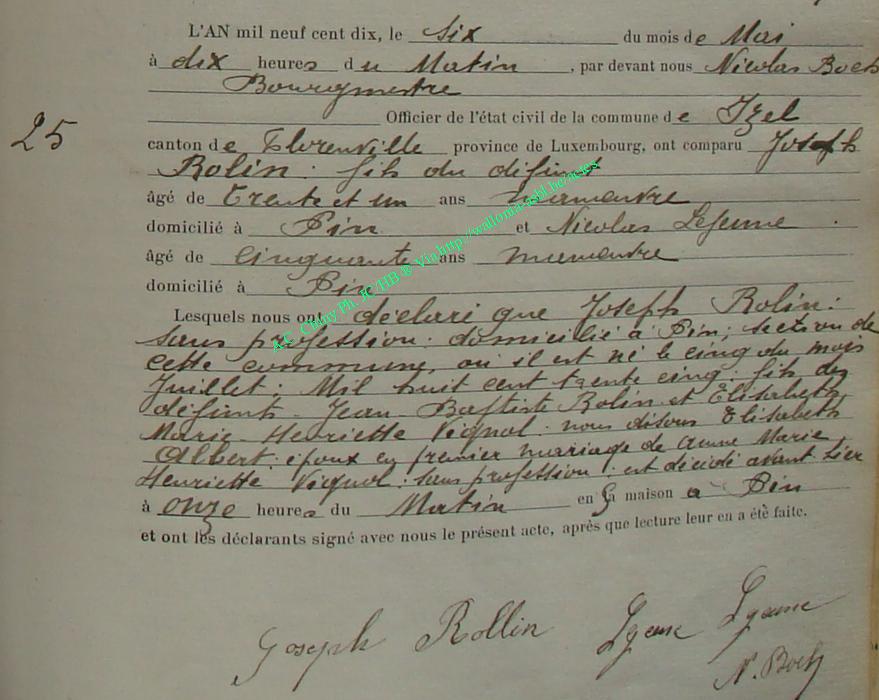 L'AN mil neuf cent dix, le six du mois de Mai
à dix heures du Matin, par devant nous Nicolas Boch
Bourgmestre
Officier de l'état civil de la commune de Izel
25
canton de Florenville province de Luxembourg, ont comparu Joseph
Rolin : fils du défunt
âgé de trente et un ans manœuvre
domicilié à Pin et Nicolas Lejeune
âgé de Cinquante ans manœuvre
domicilié à Pin
Lesquels nous ont déclaré que Joseph Rolin :
sans profession : domicilié à Pin ; section de
cette commune, où il est né le cinq du mois
Juillet : Mil huit cent trente cinq : fils des
défunts - Jean - Baptiste Rolin et Élisabeth
Marie - Henriette Vignol : nous disons Elisabeth
Albert : époux en premier mariage de Anne Marie
Henriette Vignol : sans profession : est décédé avant-hier
à onze heures du Matin en sa maison à Pin
et ont les déclarants signé avec nous le présent acte, après que lecture leur en a été faite.
A.C. Chiny Ph. JC HB ® Via http://wallonia-asbl.be/actes
Joseph Rollin
N. Boch